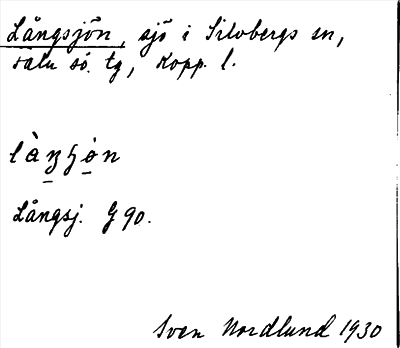 Långsjön, sjö i Silvbergs sn,
Falu sö. tg, Kopp. l.
làŋʂòn
Långsj. G 90.
Sven Nordlund 1930